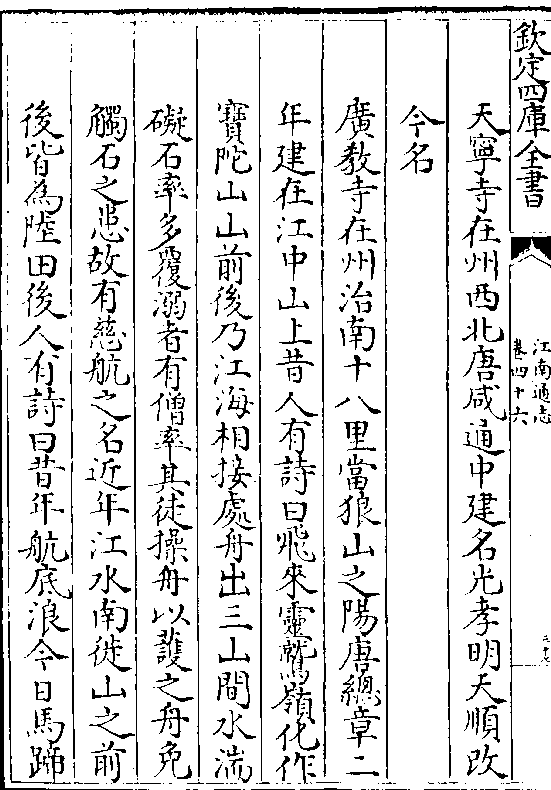 欽定四庫全書
江南通志
卷四十六
天寧寺在州西北唐咸通中建名光孝明天順改
今名
廣教寺在州治南十八里當狼山之陽唐總章二
年建在江中山上昔人有詩曰飛來靈鷲嶺化作
寶陀山山前後乃江海相接處舟出三山間水湍
礙石率多覆溺者有僧率其徒操舟以護之舟免
觸石之患故有慈航之名近年江水南徙山之前
後皆為陸田後人有詩曰昔年航底浪今日馬蹄